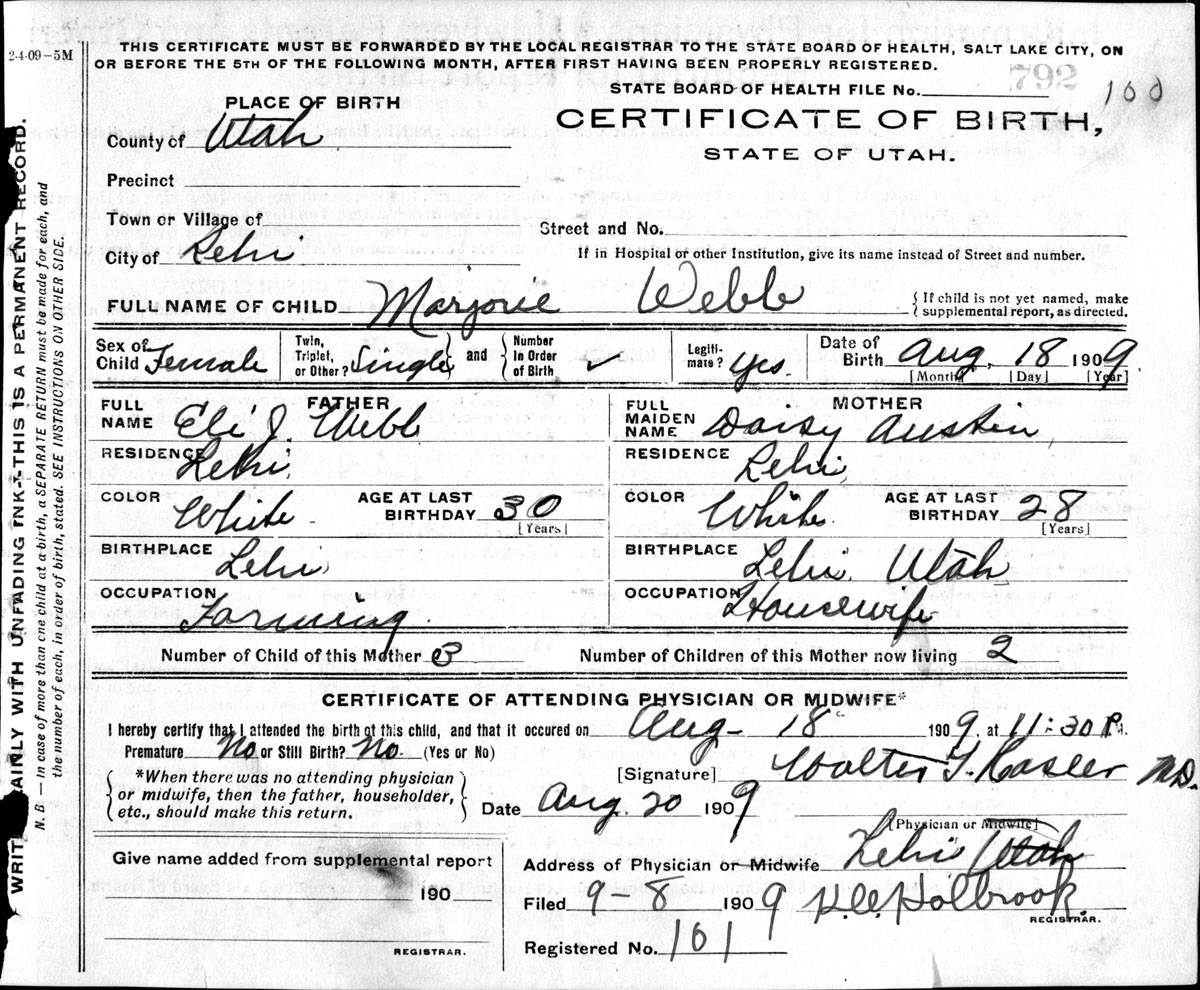 2-4-09-5M
THIS CERTIFICATE MUST BE FORWARDED BY THE LOCAL REGISTRAR TO THE STATE BOARD OF HEALTH, SALT LAKE CITY, ON
OR BEFORE THE 5TH OF THE FOLLOWING MONTH, AFTER FIRST HAVING BEEN PROPERLY REGISTERED.
STATE BOARD OF HEALTH FILE No. 100
792
PLACE OF BIRTH
CERTIFICATE OF BIRTH,
STATE OF UTAH.
County of Utah
Precinct
Town or Village of
Street and No.
City of Lehi
If in Hospital or other Institution, give its name instead of Street and number.
FULL NAME OF CHILD Marjorie Webb
{If child is not yet named, make
supplemental report, as directed.
Sex of Child Female
Twin, Triplet, or Other? Single
and
Number In Order of Birth ✓
Legitimate? Yes.
Date of Birth Aug, 18 1909
[Month] [Day] [Year]
FATHER
FULL NAME Eli J. Webb
RESIDENCE Lehi
COLOR White
AGE AT LAST BIRTHDAY 30
[Years]
BIRTHPLACE Lehi
OCCUPATION Farming
MOTHER
FULL MAIDEN NAME Daisy Austin
RESIDENCE Lehi
COLOR White
AGE AT LAST BIRTHDAY 28
[Years]
BIRTHPLACE Lehi Utah
OCCUPATION Housewife
Number of Child of this Mother 3
Number of Children of this Mother now living 2
CERTIFICATE OF ATTENDING PHYSICIAN OR MIDWIFE*
I hereby certify that I attended the birth of this child, and that it occured on Aug- 18 1909. at 11:30 P.M.
Premature No or Still Birth? No. (Yes or No)
*When there was no attending physician
or midwife, then the father, householder,
etc., should make this return.
[Signature] Walter T. Hasler M.D.
Date Aug. 20 1909
[Physician or Midwife]
Give name added from supplemental report
190
REGISTRAR.
Address of Physician or Midwife Lehi Utah
Filed 9-8 1909 H.C. Holbrook
REGISTRAR.
Registered No. 101
WRITE PLAINLY WITH UNFADING INK--THIS IS A PERMANENT RECORD.
N. B. — In case of more than one child at birth, a SEPARATE RETURN must be made for each, and
the number of each, in order of birth, stated. SEE INSTRUCTIONS ON OTHER SIDE.